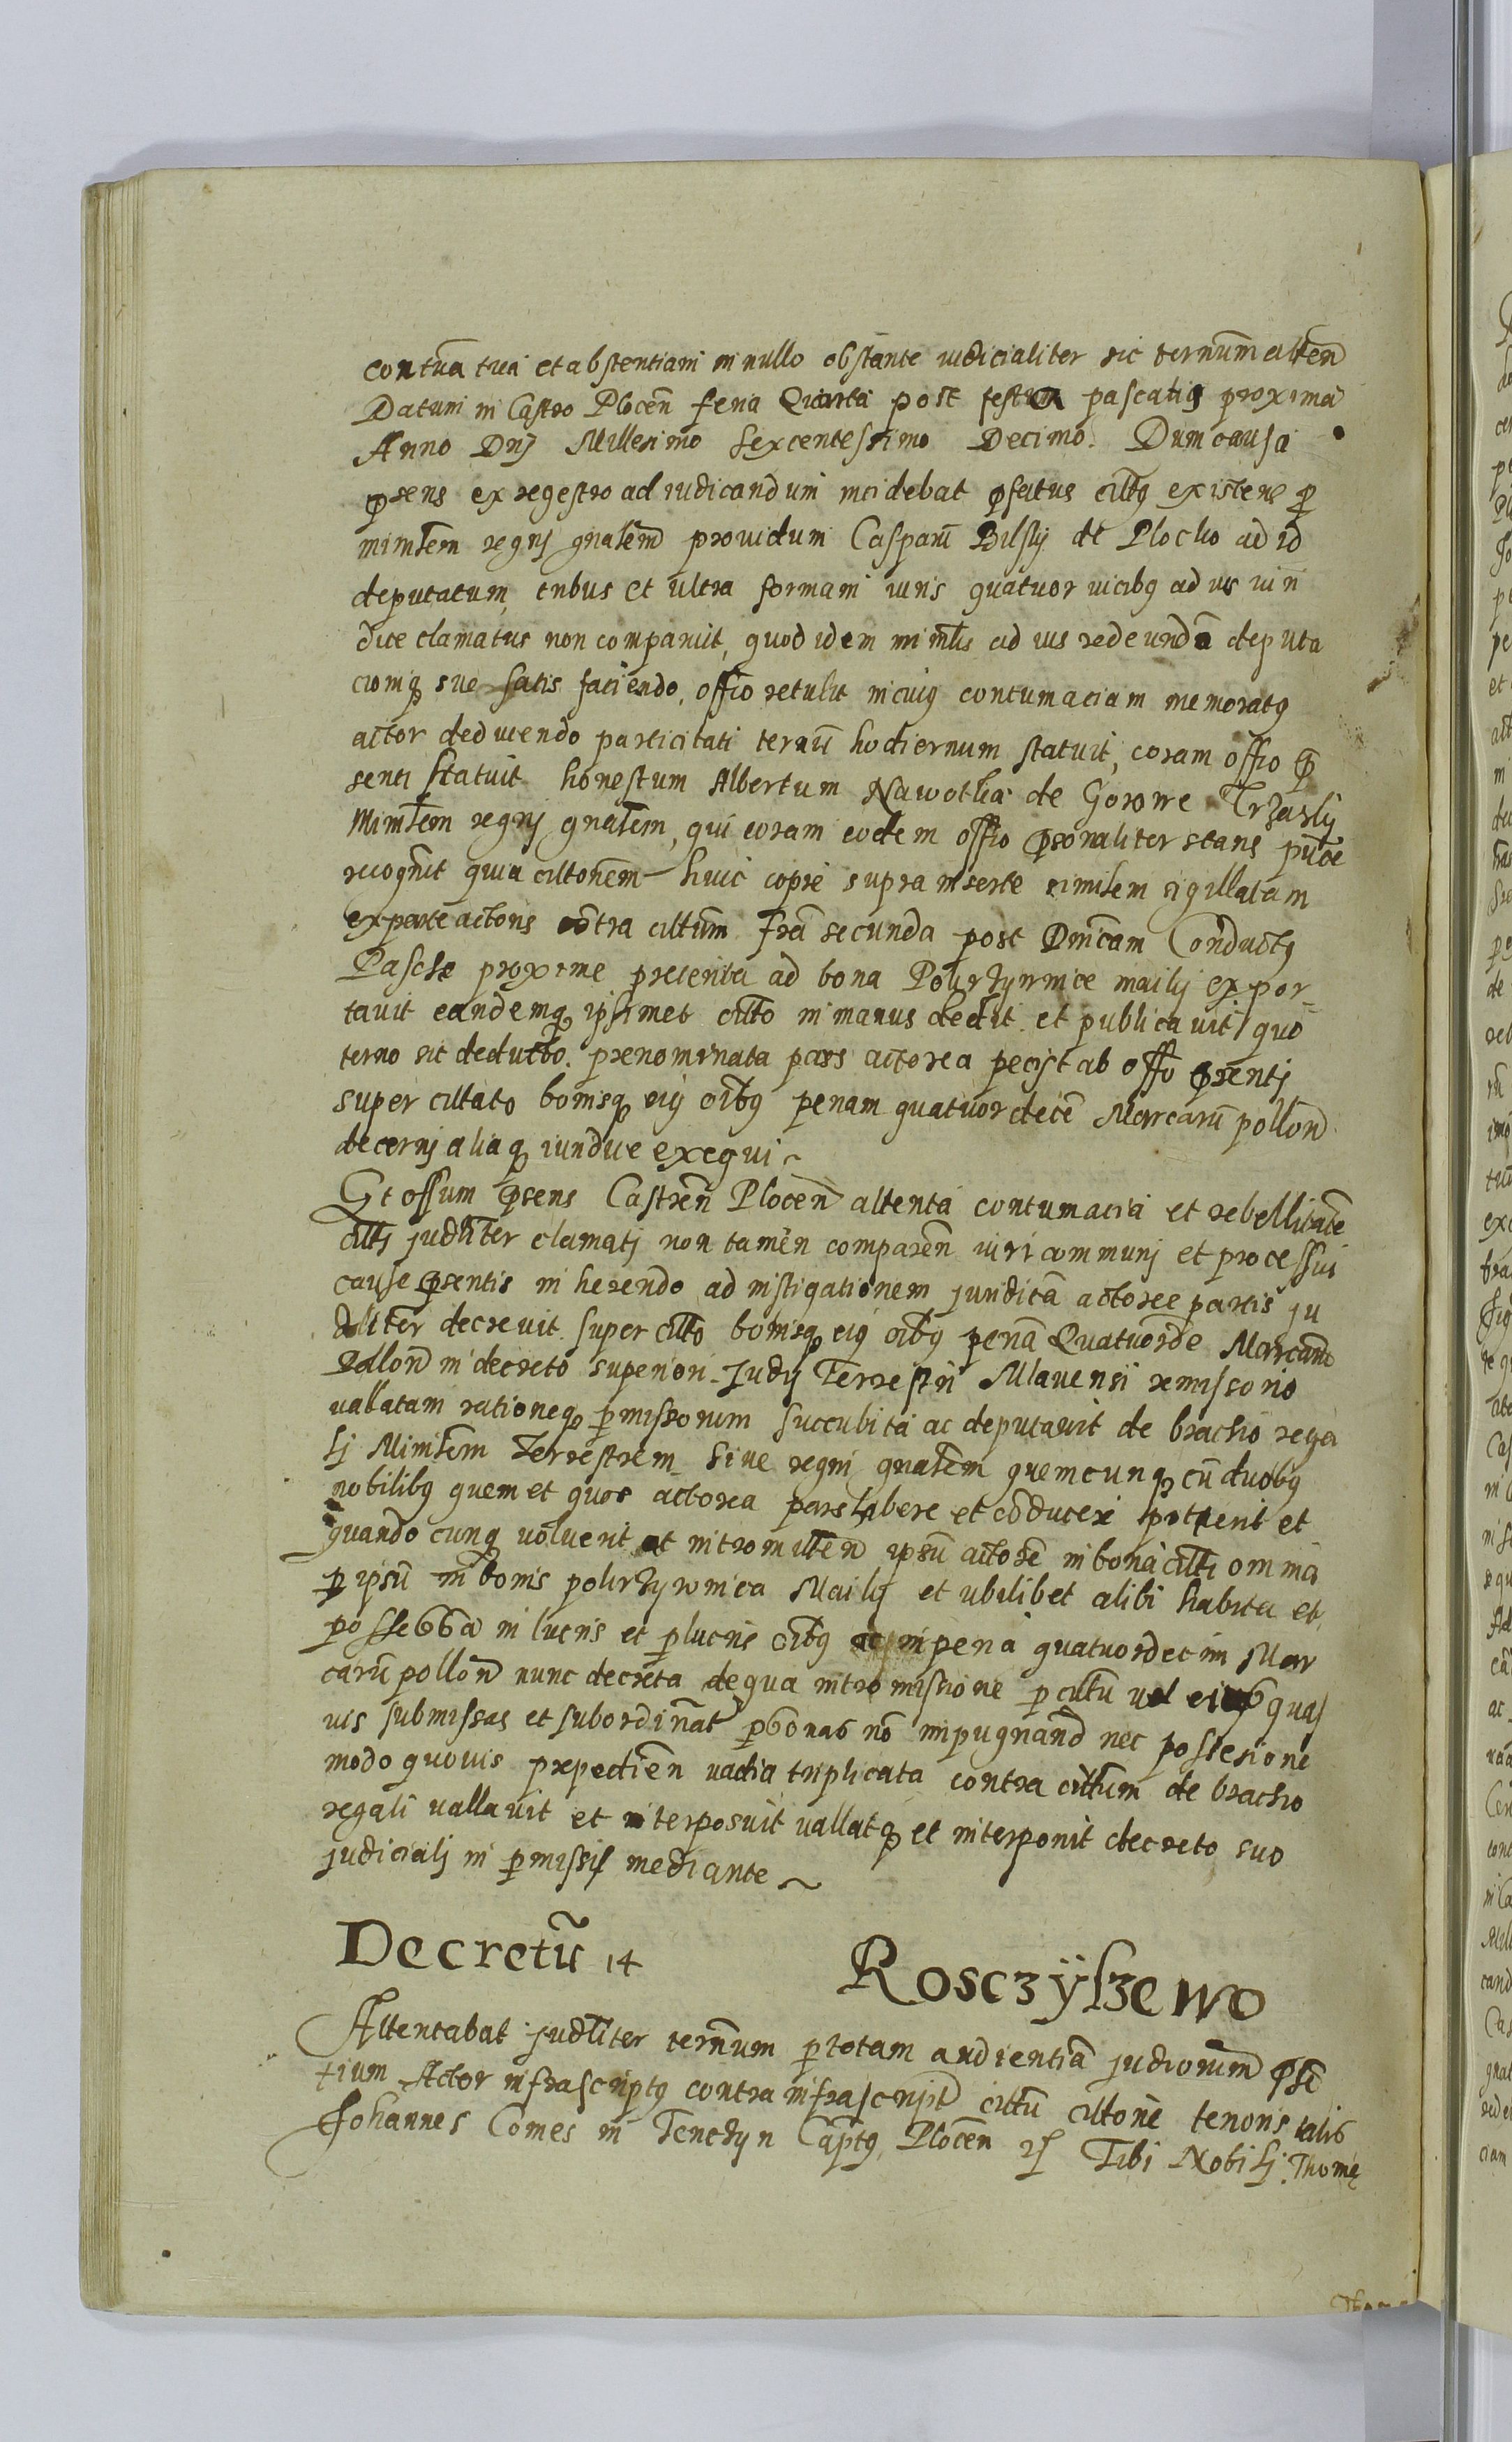 contūa tua et abstentiam in nullo obstante iudicialiter sic ternūm alten̄
Datum in Castro Plocen̄ feria Quarta post festum pascatis proxima
Anno Dnj Millesimo Sexcentessimo Decimo. Dum causa
p̄sens ex regestro ad iudicandum incidebat p̄fatus cittꝯ existens p̱
mimlem regnj gnalem providum Casparū Bilsky de Plocko ad id
deputatum, tribus et ultra formam iuris quatuor vicibꝯ ad ius iuri
dice clamatus non comparuit, quod idem mimlis ad ius redeundā deputa
cioniqꝫ sue satis faciendo, offio retulit in cuiꝯ contumaciam memoratꝯ
actor deducendo particitati ternū hodiernum statuit, coram offio p̄
senti statuit honestum Albertum Nawotka de Gorowe Trzasky
Mimlem regnj gnalem, qui coram eodem offio p̱sonaliter stans pulce
recognit quia cittonem huic copie supra inserte similem sigillatam
ex parte actoris cōtra cittum fra secunda post Dnicam Conductꝯ
Pasche proxime preterita ad bona Polirzywnice maily expor-
tavit eandemqꝫ ipsimet citto in manus dedit et publicavit, quo
terno sic deducto. prenominata pars actorea pecijt ab offo p̄sentj
super cittato bonisqꝫ eiꝯ oibꝯ penam quatuordecē Marcarū pollon̄
decernj aliaqꝫ iuridice exequi ~
Et offium p̄sens Castren̄ Plocen̄ altenta contumacia et rebellitate
citti judlīter clamatj non tamēn comparen̄ iuri communj et processui
cause p̄sentis in herendo ad instigationem juridicā actoree partis ju
dliter decrevit super citto bonisqꝫ eiꝯ oibꝯ penā Quatuorde Marcarū
Pollon̄ in decreto superiori Judy Terrestri Mlavensi remissorio
vallatam rationeqꝫ p̱missorum succubita ac deputavit de brachio rega
lj Mimlem Terrestrem sive regni gnalem quemcunqꝫ cū duobꝯ
nobilibꝯ quem et quos actorea pars habere et cōducere potuerit et
quando cunqꝫ voluerit at intromitten̄ ipsū actorē in bona citti omnia
p̱ ipsū in bonis polirzywnica Maily et ubilibet alibi habita et
possessa in lucris et p̱lucris oibꝯ in pena quatuordecim Mar
carū pollon̄ nunc decreta de qua intromissione p̱ cittū vel quas
vis submissas et subordinat̄ p̱sonas nō impugnand̄ nec possesione
modo quovis prepedien̄ vadia triplicata contra cittum de brachio
regali vallavit et interposuit vallatqꝫ et interponit decreto suo
judicialj in p̱missis mediante ~
Decretū 14 Rosczyszewo
Attentabat judliter ternum p̱ totam audientiā judiorum p̄sē
tium Actor infrascriptꝯ contra infrascript̄ cittū cittone tenoris talis
Johannes Comes in Tenczyn Captꝯ Plocen̄ Tibi Nobilj Thomę